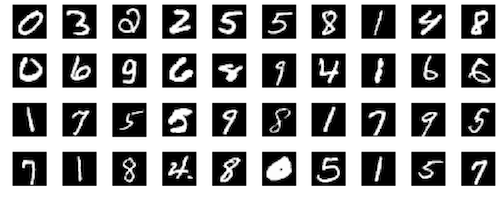 0 3 2 2 5 5 8 1 4 8
0 6 9 6 8 9 4 1 6 6
1 7 5 5 9 8 1 7 9 5
7 1 8 4 8 0 5 1 5 7